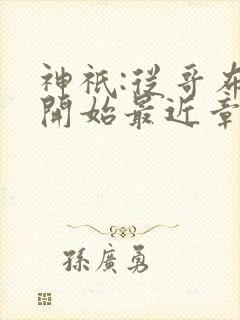 神祇:從哥布
開始最近章
孫廣勇